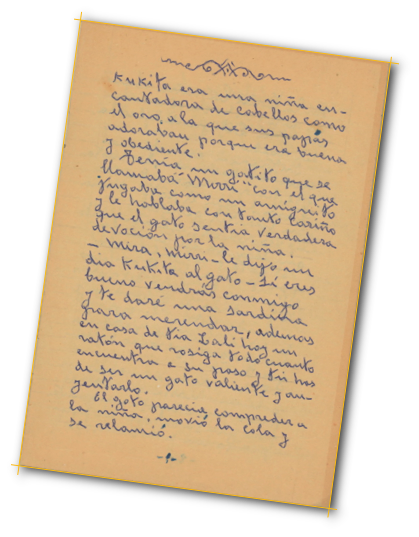 Kukita era una niña en-
cantadora de cabellos como
el oro, a la que sus papás
adoraban porque era buena
y obediente.
Tenía un gatito que se
llamaba "Mirri" con el que
jugaba como un amiguito
y le hablaba con tanto cariño
que el gato sentía verdadera
devoción por la niña.
- Mira, Mirri - le dijo un
dia Kukita al gato - Si eres
bueno vendrás conmigo
y te daré una sardina
para merendar, además
en casa de tía Lali hay un
ratón que rosiga todo cuanto
encuentra a su paso y tú has
de ser un gato valiente y au-
yentarlo.
El gato parecie comprender a
la niña, movió la cola y
se relamió.
-1-